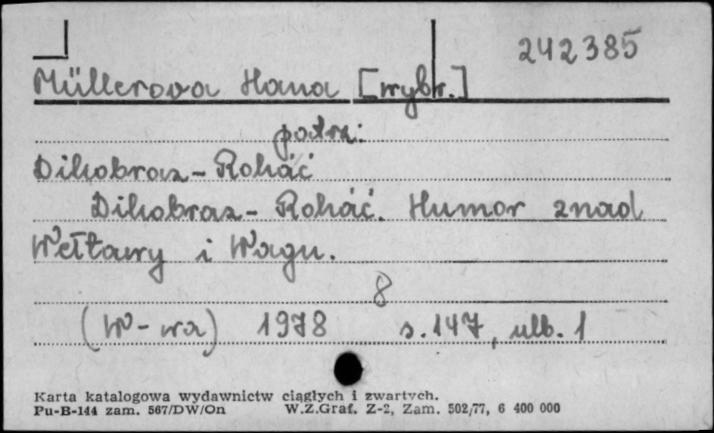 242385
Müllerova Hana [wybr.]
patrz:
Dikobraz - Roháč
Dikobraz - Roháč. Humor znad
Wełtawy i Wagu.
8
(W-wa) 1978 s. 147, ulb. 1
Karta katalogowa wydawnictw ciągłych i zwartych.
Pu-B-144 zam. 567/DW/On W.Z.Graf. Z-2, Zam. 502/77, 6 400 000